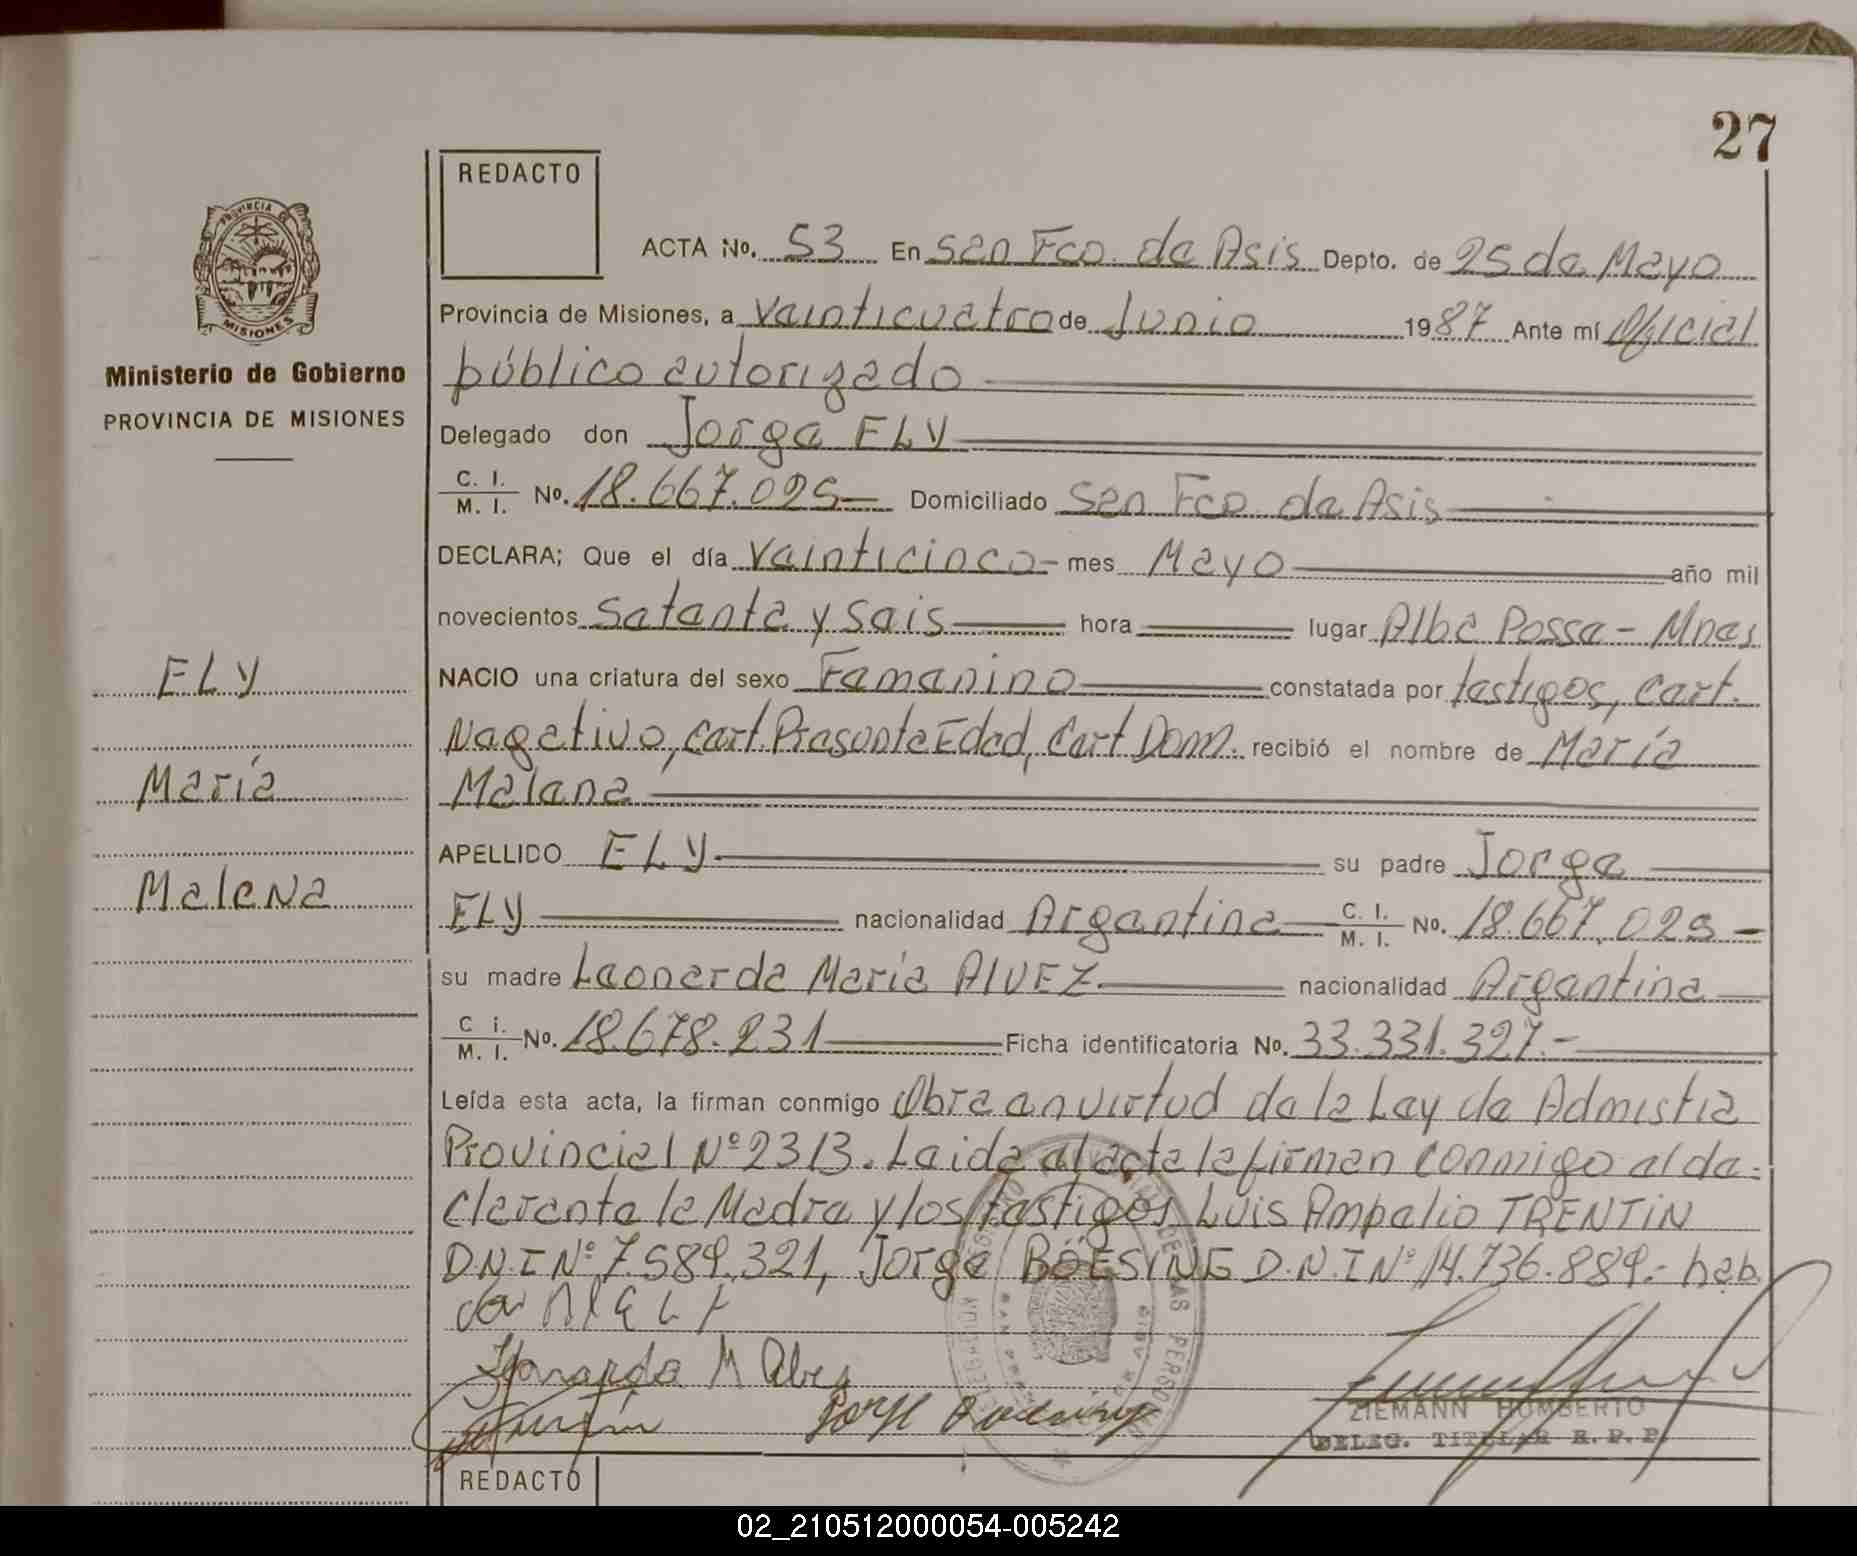 27
REDACTO
PROVINCIA DE
MISIONES
Ministerio de Gobierno
PROVINCIA DE MISIONES
ACTA No. 53 En San Fco. de Asis Depto. de 25 de Mayo
Provincia de Misiones, a veinticuatro de Junio 1987 Ante mí Oficial
público autorizado
Delegado don Jorge ELY
C. I. / M. I. No. 18.667.025 Domiciliado San Fco. de Asis
DECLARA; Que el día veinticinco mes Mayo año mil
novecientos setenta y seis hora lugar Alba Posse - Mnes
NACIO una criatura del sexo Femenino constatada por testigos, Cert.
Negativo, Cert. Presunta Edad, Cert Dom. recibió el nombre de María
Malena
APELLIDO ELY su padre Jorge
ELY nacionalidad Argentina C. I. / M. I. No. 18.667.025 -
su madre Leonarda María AlVEZ nacionalidad Argentina
C i. / M. I. No. 18.678.231 Ficha identificatoria No. 33.331.327.-
Leída esta acta, la firman conmigo Obra en virtud de la Ley de Admistia
Provincial Nº 2313. Leida el acta la firman conmigo el de-
clarante la Madre y los testigos Luis Ampelio TRENTIN
D.N.I Nº 7.589.321, Jorge BÖESING D.N.I Nº 14.736.889.- hab.
ELY
María
Malena
ZIEMANN HUMBERTO
DELEG. TITULAR R. P. P.
REDACTO
02_210512000054-005242